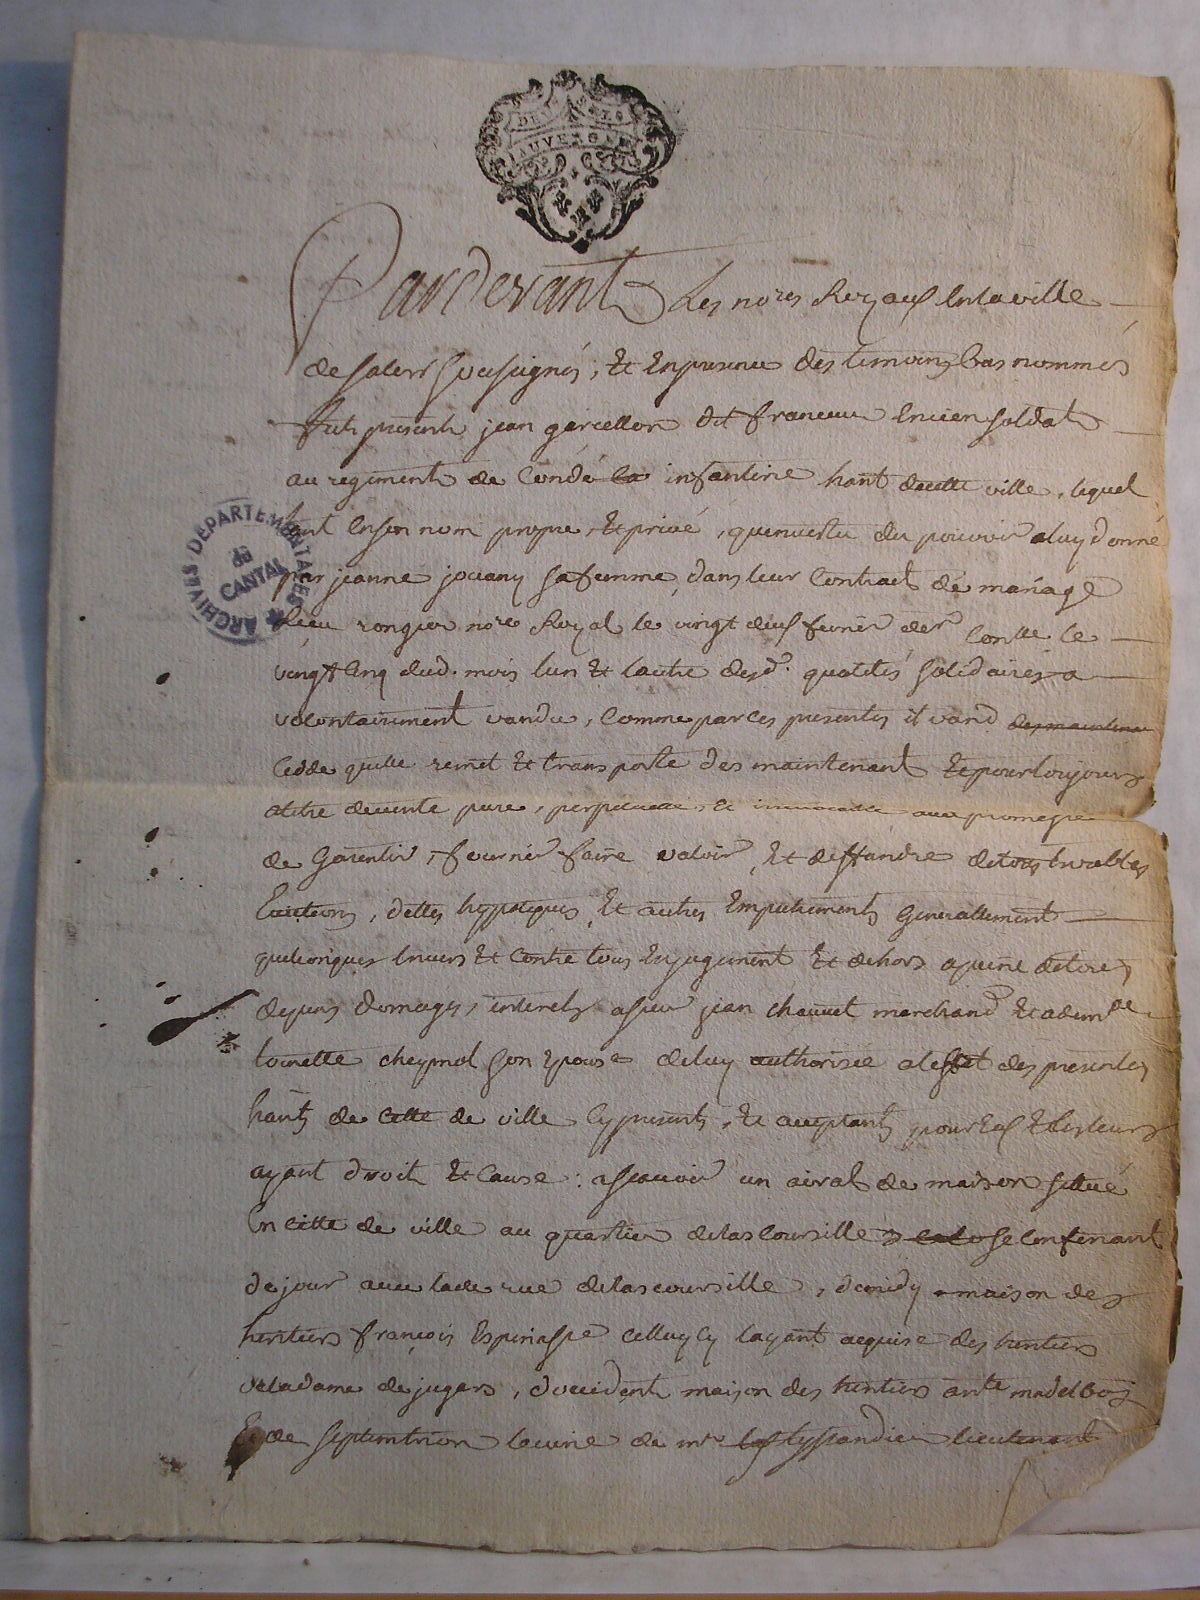 AUVERGNE
ARCHIVES DEPARTEMENTALES
du
CANTAL
Pardevant Les nores Royaux En la ville
de Salers sousignés, Et En presence des temoins bas nommés
fut present jean garcellon dit francoeur Encien soldat
au regiment de Condé infanterie hant de cette ville, lequel
tant En son nom propre Et privé, qu'en vertu du pouvoir a luy donné
par jeanne jouany sa femme, dans leur Contract de mariage
Reçu rongier nore Royal le vingt deux fevrier der Conllé le
vingt Cinq dud. mois lun Et lautre desd. qualités solidaires a
volontairement vandu, Comme par Ces presentes il vand des maintenan
Cedde quitte remet Et transporte des maintenant Et pour toujours
a titre de vente pure, perpetuelle, Et irrevocable avec promesse
de Garentir, fournir faire valoir, Et deffandre de tous troubles
Evictions, dettes hypoteques, Et autres Empechements Generallement
quelconques Envers Et Contre tous En jugement Et dehors a peine de tous
depens domages, interets a sieur jean chauvet marchand Et a dem.lle
toinette cheymol son Epouse de luy authorisée a leffet des presentes
hants de cette de ville Cy presents, Et acceptants pour Eux Et les leurs
ayant droit Et Cause : a scavoir un airal de maison sittué
En cette de ville au quartier de las Coursille se Confinant
de jour avec lade rue de las coursille, de midy maison des
heritiers françois Espinasse celluy Cy layant acquise des heritiers
de la dame de jugars, d'occident maison des heritiers ante
Et de septentrion de mr lieutenant